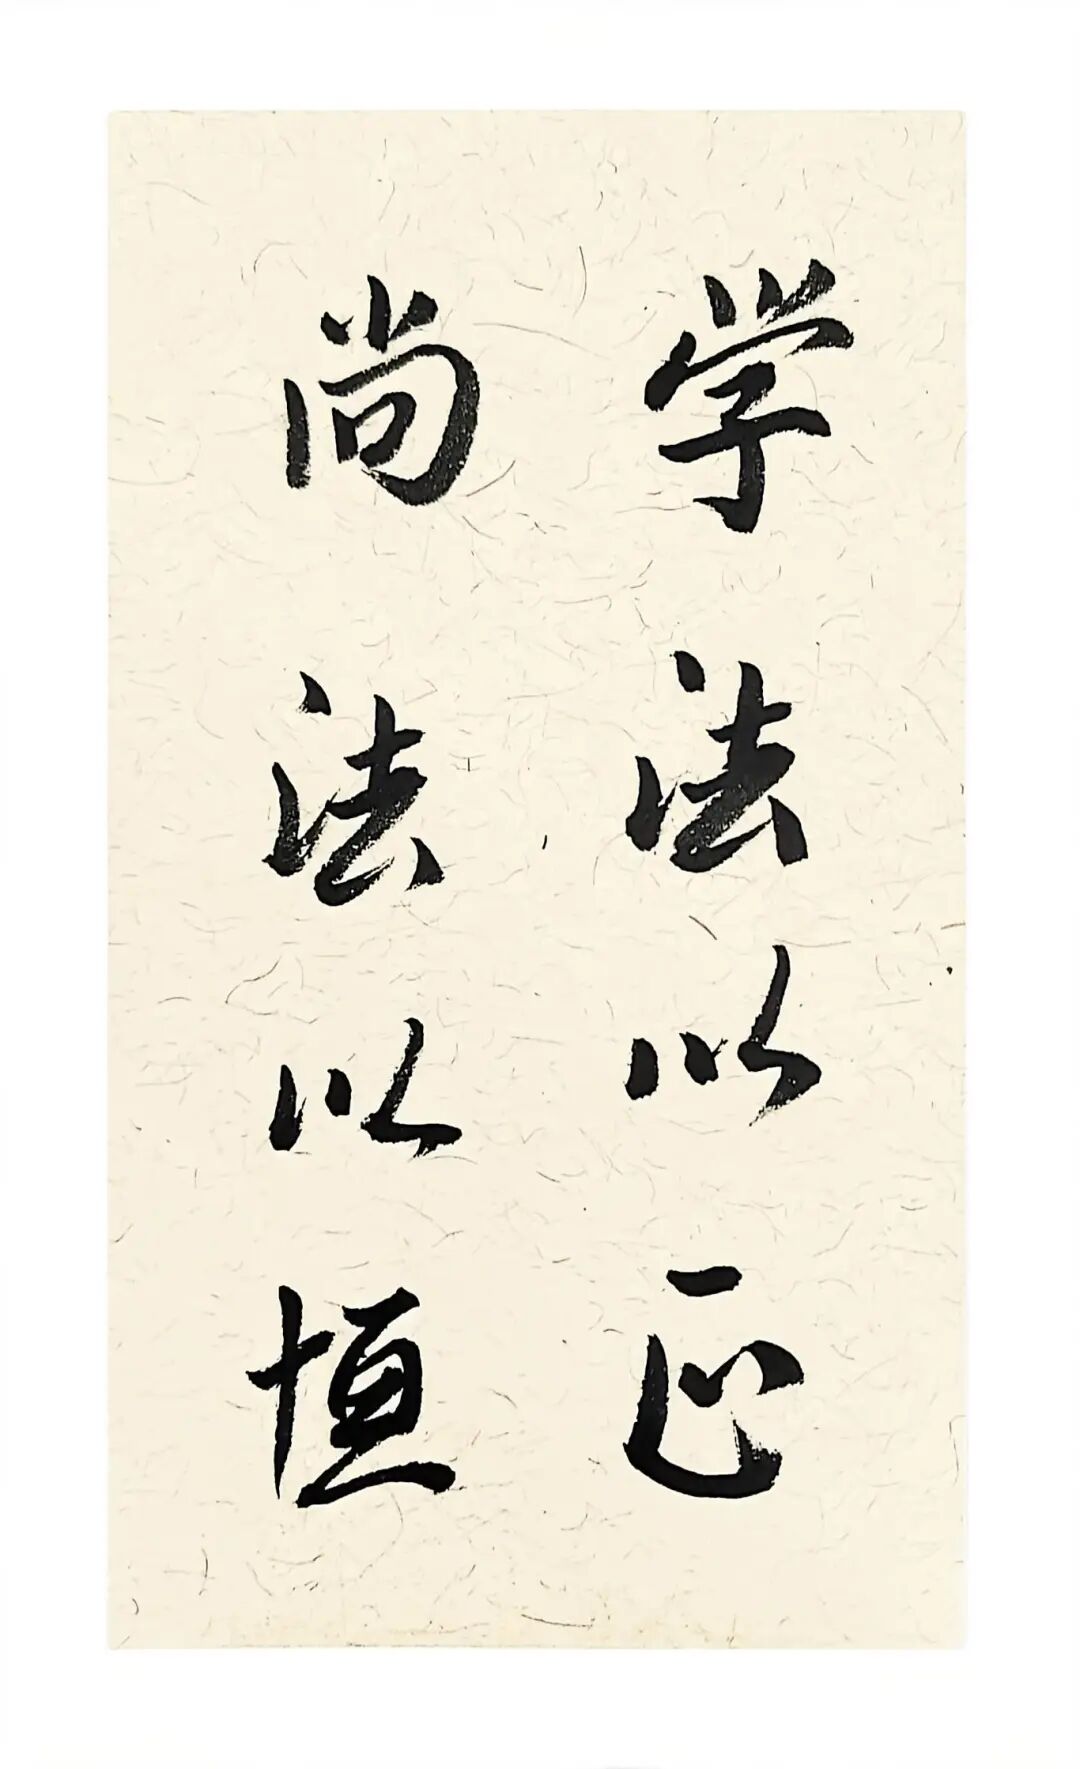 学法以正
尚法以恒